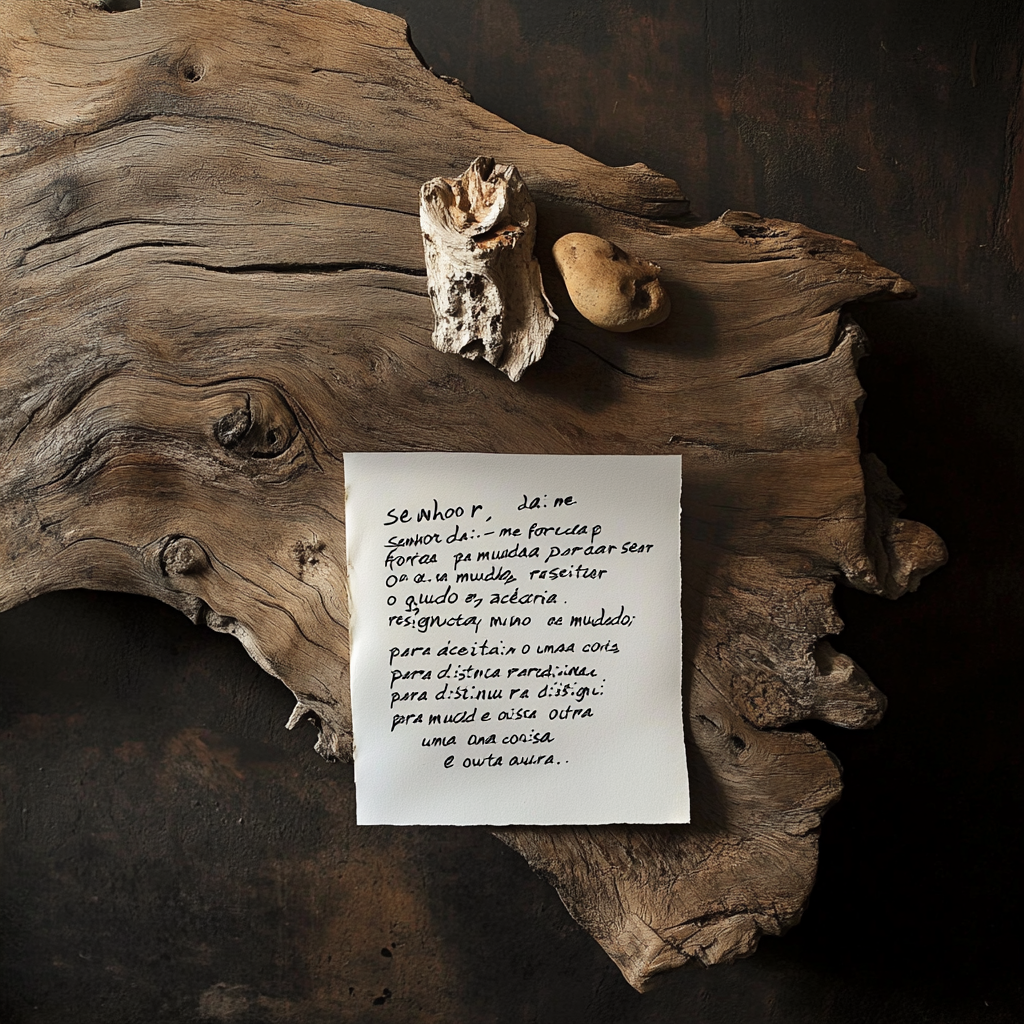 Senhoor, dai: me
Senhor dai:-me forcsap
forças pa mudaa par aar ser
o a.sa mudo, reseiter
o qludo e, aceària.
resignucta, mino oe mudado;
para áceitain o umsa coris
para distnca
para distinu ra dissigni:
para mudd e ouisca outra
uma ana conisa
e outa aura..